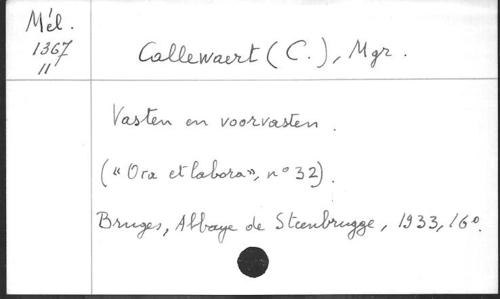 Mél.
1367
11
Callewaert (C.), Mgr.
Vasten en voorvasten.
(« Ora et labora», n° 32).
Bruges, Abbaye de Steenbrugge, 1933, 16°.